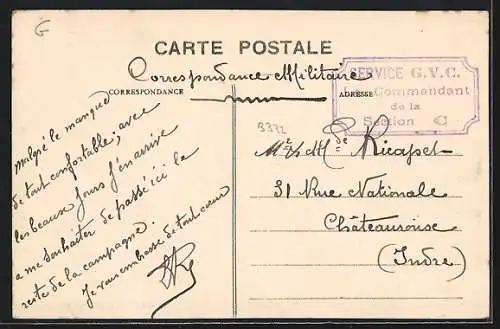 G
CARTE POSTALE
Correspondance Militaire
CORRESPONDANCE
ADRESSE
SERVICE G.V.C.
Le Commandant
de la
Section C
3372
Malgré le manque
de tout confortable; avec
les beaux jours j'en arrive
a me souhaiter de passé ici le
reste de la campagne.
Je vous embrasse de tout coeur
Mr & Mde Ricapet
31 Rue Nationale
Châteauroux
(Indre)